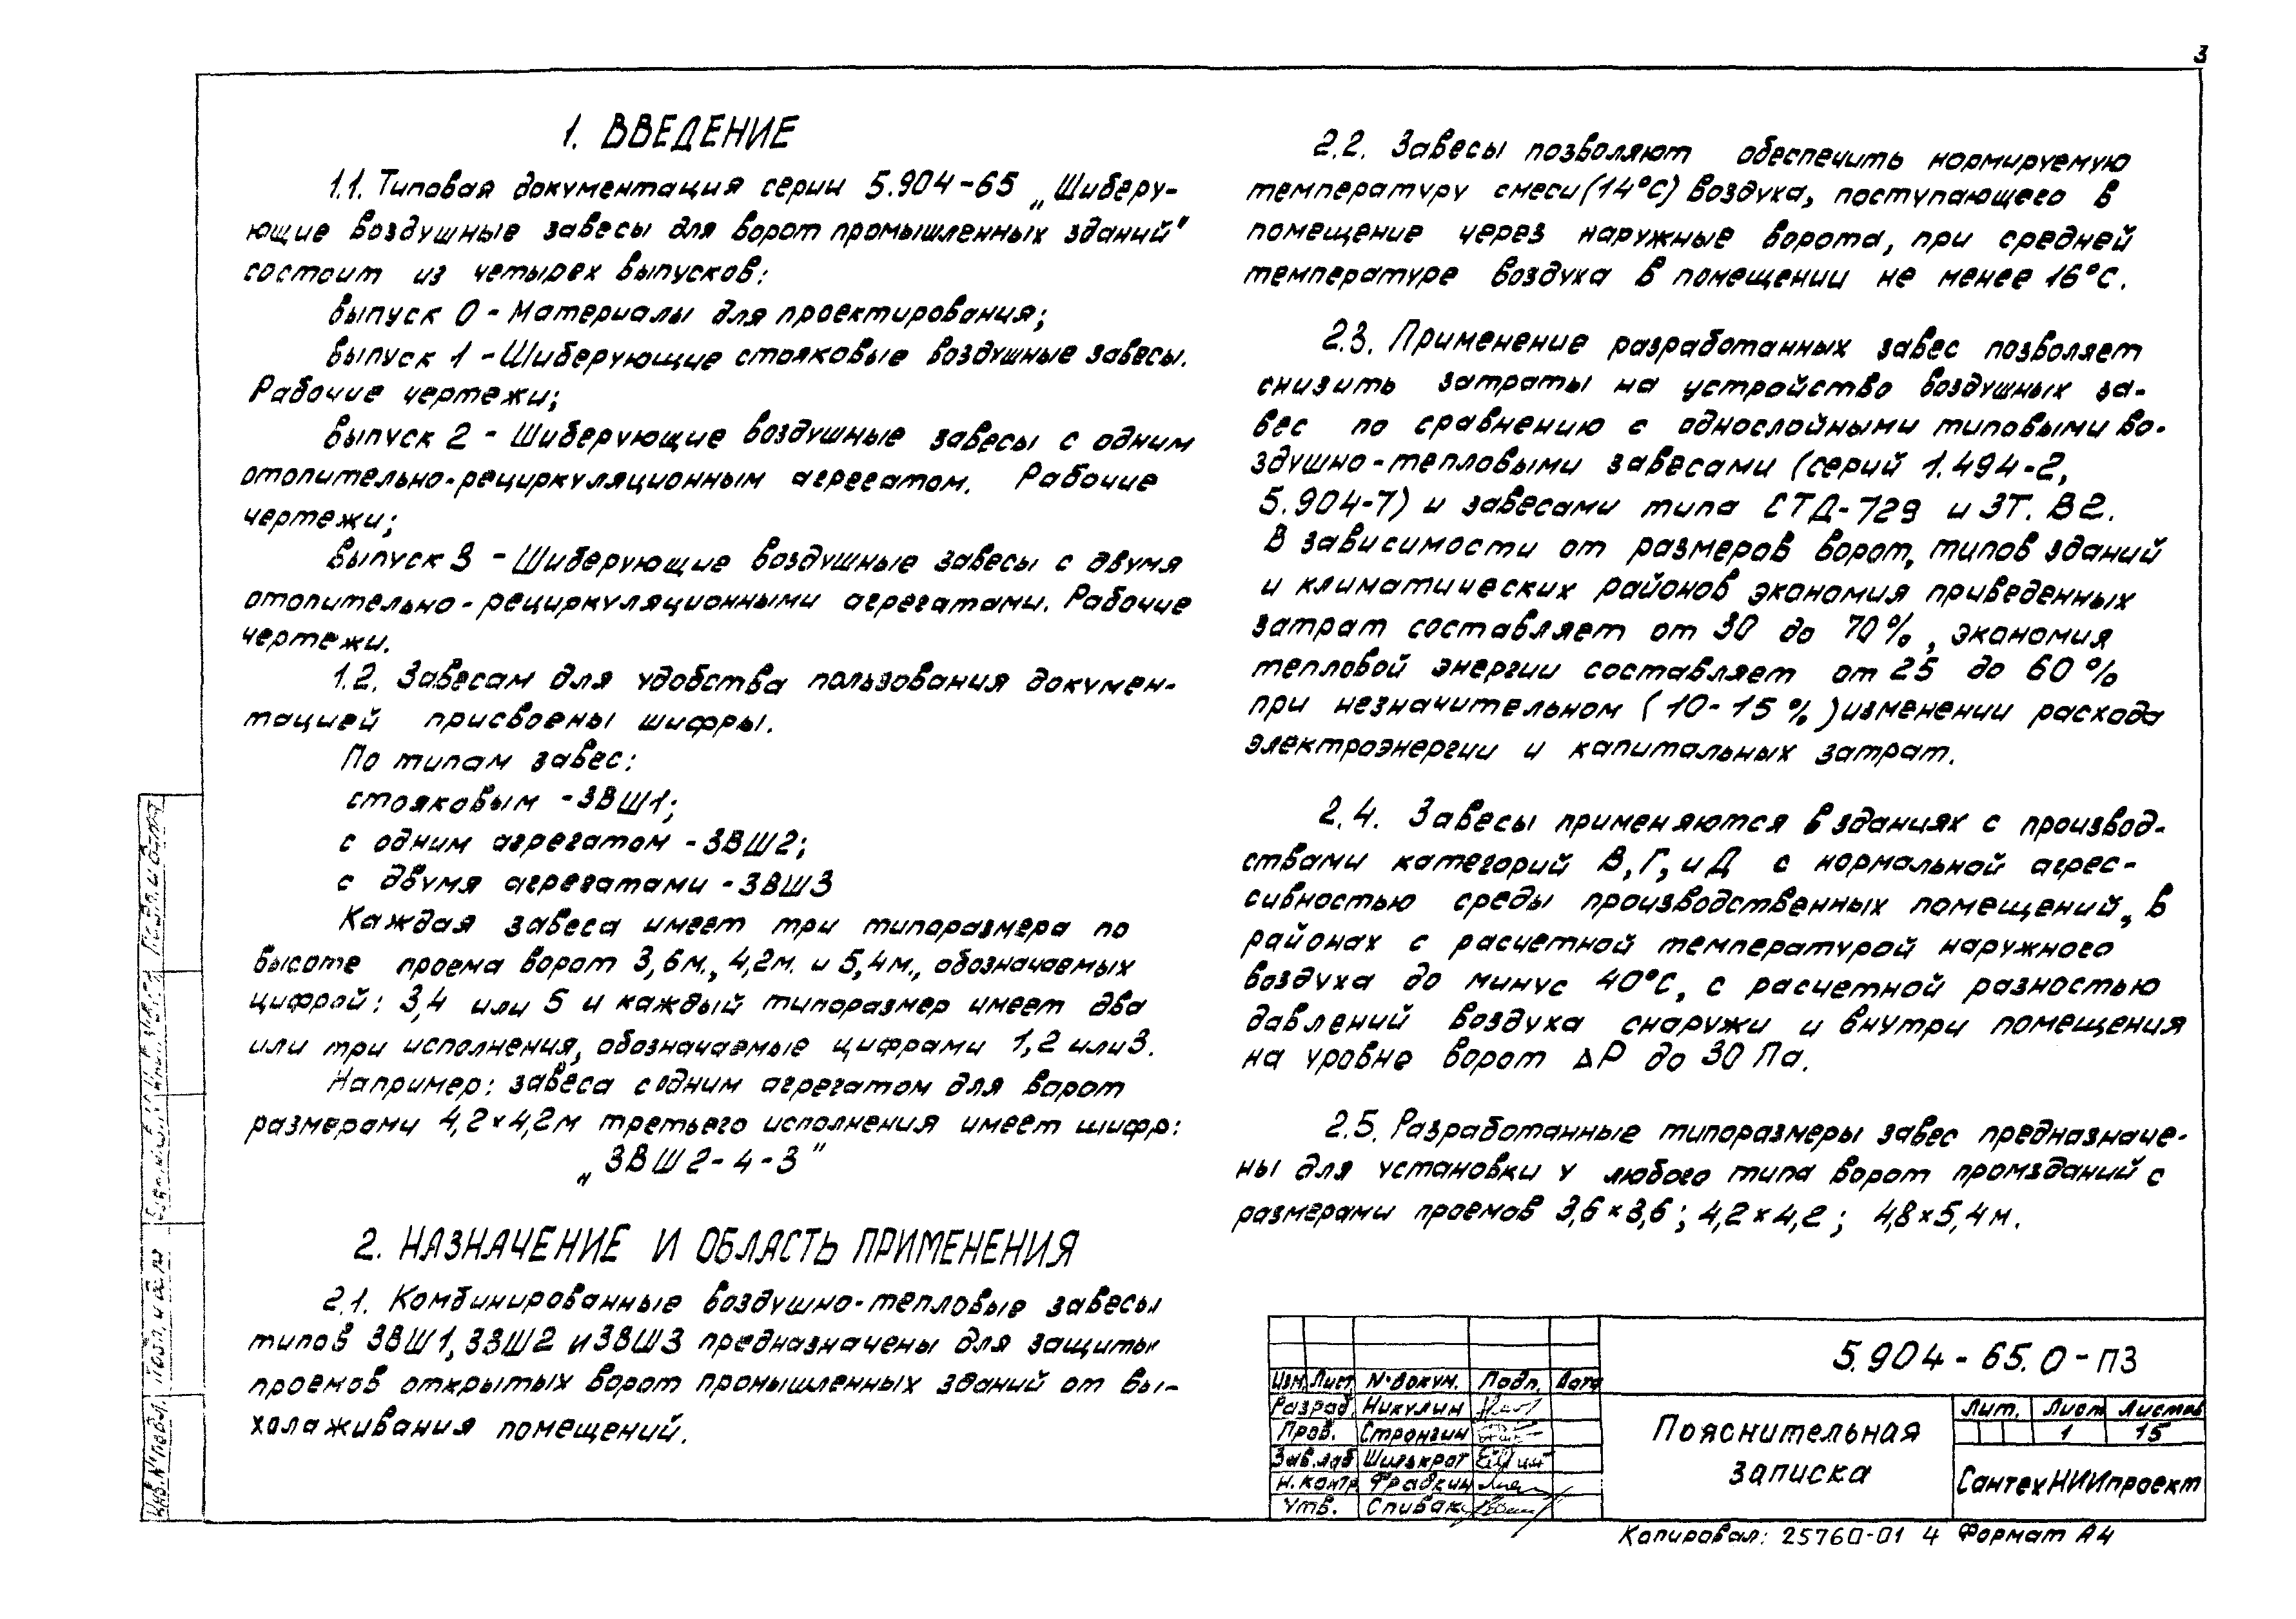 3
1. ВВЕДЕНИЕ
1.1. Типовая документация серии 5.904-65 „Шиберу-
ющие воздушные завесы для ворот промышленных зданий"
состоит из четырех выпусков:
выпуск 0 - Материалы для проектирования;
выпуск 1 - Шиберующие стояковые воздушные завесы.
Рабочие чертежи;
выпуск 2 - Шиберующие воздушные завесы с одним
отопительно-рециркуляционным агрегатом. Рабочие
чертежи;
выпуск 3 - Шиберующие воздушные завесы с двумя
отопительно-рециркуляционными агрегатами. Рабочие
чертежи.
1.2. Завесам для удобства пользования докумен-
тацией присвоены шифры.
По типам завес:
стояковым - ЗВШ1;
с одним агрегатом - ЗВШ2;
с двумя агрегатами - ЗВШ3
Каждая завеса имеет три типоразмера по
высоте проема ворот 3,6м., 4,2м. и 5,4м., обозначаемых
цифрой: 3,4 или 5 и каждый типоразмер имеет два
или три исполнения, обозначаемые цифрами 1,2 или 3.
Например: завеса с одним агрегатом для ворот
размерами 4,2×4,2м третьего исполнения имеет шифр:
„ЗВШ2-4-3"
2. НАЗНАЧЕНИЕ И ОБЛАСТЬ ПРИМЕНЕНИЯ
2.1. Комбинированные воздушно-тепловые завесы
типов ЗВШ1, ЗВШ2 и ЗВШ3 предназначены для защиты
проемов открытых ворот промышленных зданий от вы-
холаживания помещений.
2.2. Завесы позволяют обеспечить нормируемую
температуру смеси (14°С) воздуха, поступающего в
помещение через наружные ворота, при средней
температуре воздуха в помещении не менее 16°С.
2.3. Применение разработанных завес позволяет
снизить затраты на устройство воздушных за-
вес по сравнению с однослойными типовыми во-
здушно-тепловыми завесами (серий 1.494-2,
5.904-7) и завесами типа СТД-729 и ЗТ. В2.
В зависимости от размеров ворот, типов зданий
и климатических районов экономия приведенных
затрат составляет от 30 до 70%, экономия
тепловой энергии составляет от 25 до 60%
при незначительном (10-15%) изменении расхода
электроэнергии и капитальных затрат.
2.4. Завесы применяются в зданиях с производ-
ствами категорий В, Г, и Д с нормальной агрес-
сивностью среды производственных помещений, в
районах с расчетной температурой наружного
воздуха до минус 40°С, с расчетной разностью
давлений воздуха снаружи и внутри помещения
на уровне ворот ΔР до 30 Па.
2.5. Разработанные типоразмеры завес предназначе-
ны для установки у любого типа ворот промзданий с
размерами проемов 3,6×3,6; 4,2×4,2; 4,8×5,4м.
5.904-65.0-ПЗ
Изм. Лист № докум. Подп. Дата
Разраб. Никулин
Пров. Стронгин
Зав.лаб Шилькрот
Н.контр Фрадкин
Утв. Спивак
Пояснительная
записка
Лит. Лист Листов
1 15
СантехНИИпроект
Копировал: 25760-01 4 Формат А4
Инв.№ подл. Подп. и дата